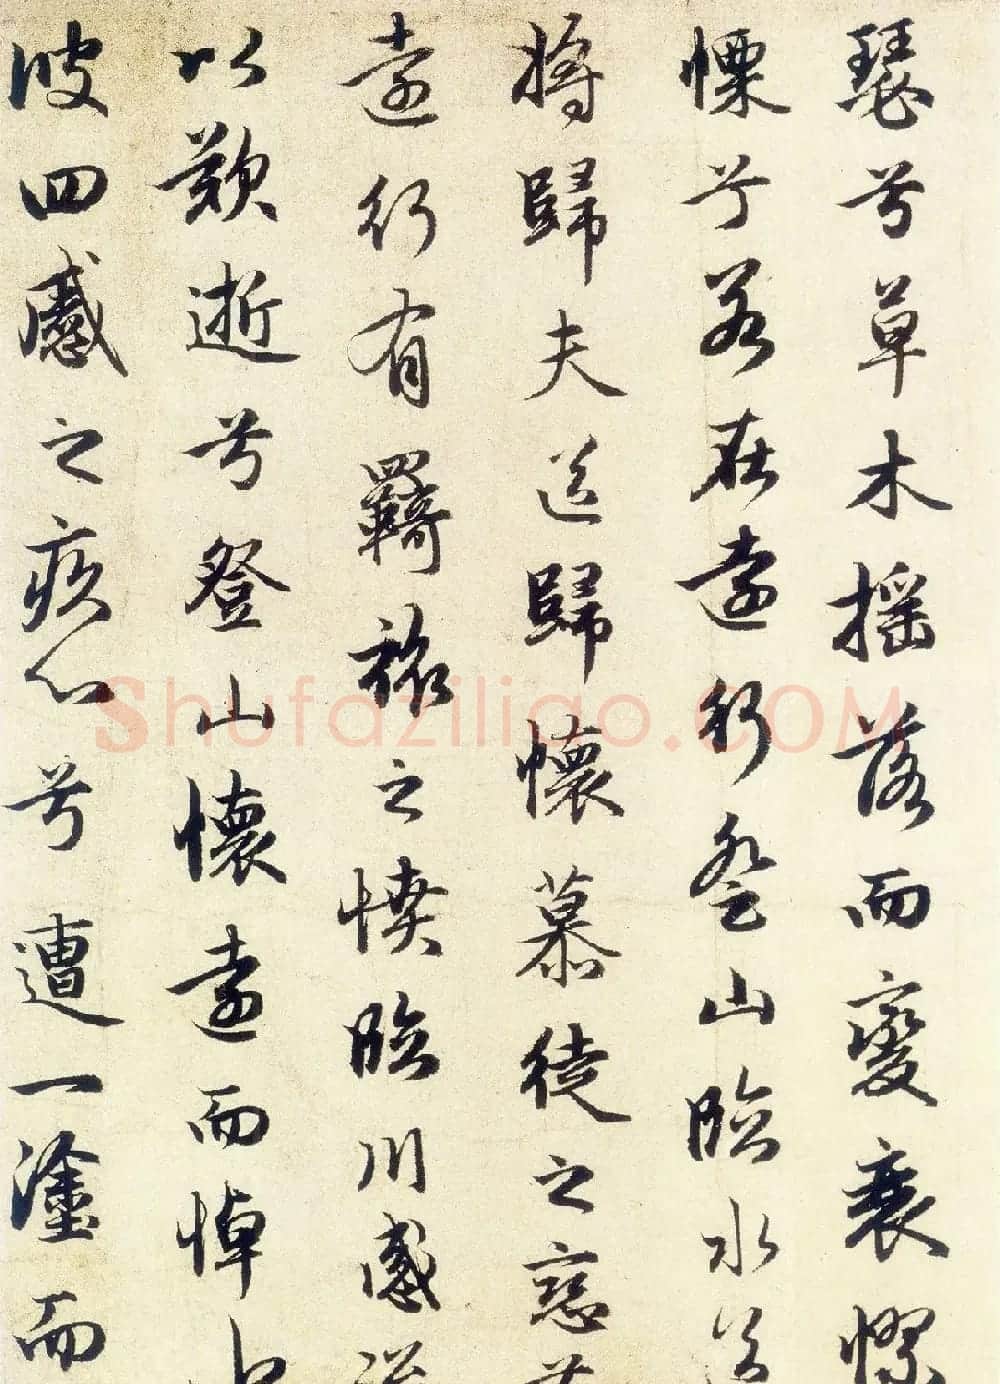 瑟兮草木摇落而變衰憭
慄兮若在遠行登山臨水送
將歸夫送歸懷慕徒之戀
遠行有羈旅之憤臨川感流
以歎逝兮登山懷遠而悼
彼四慼之疚心兮遭一塗而
Shufaziliao.COM